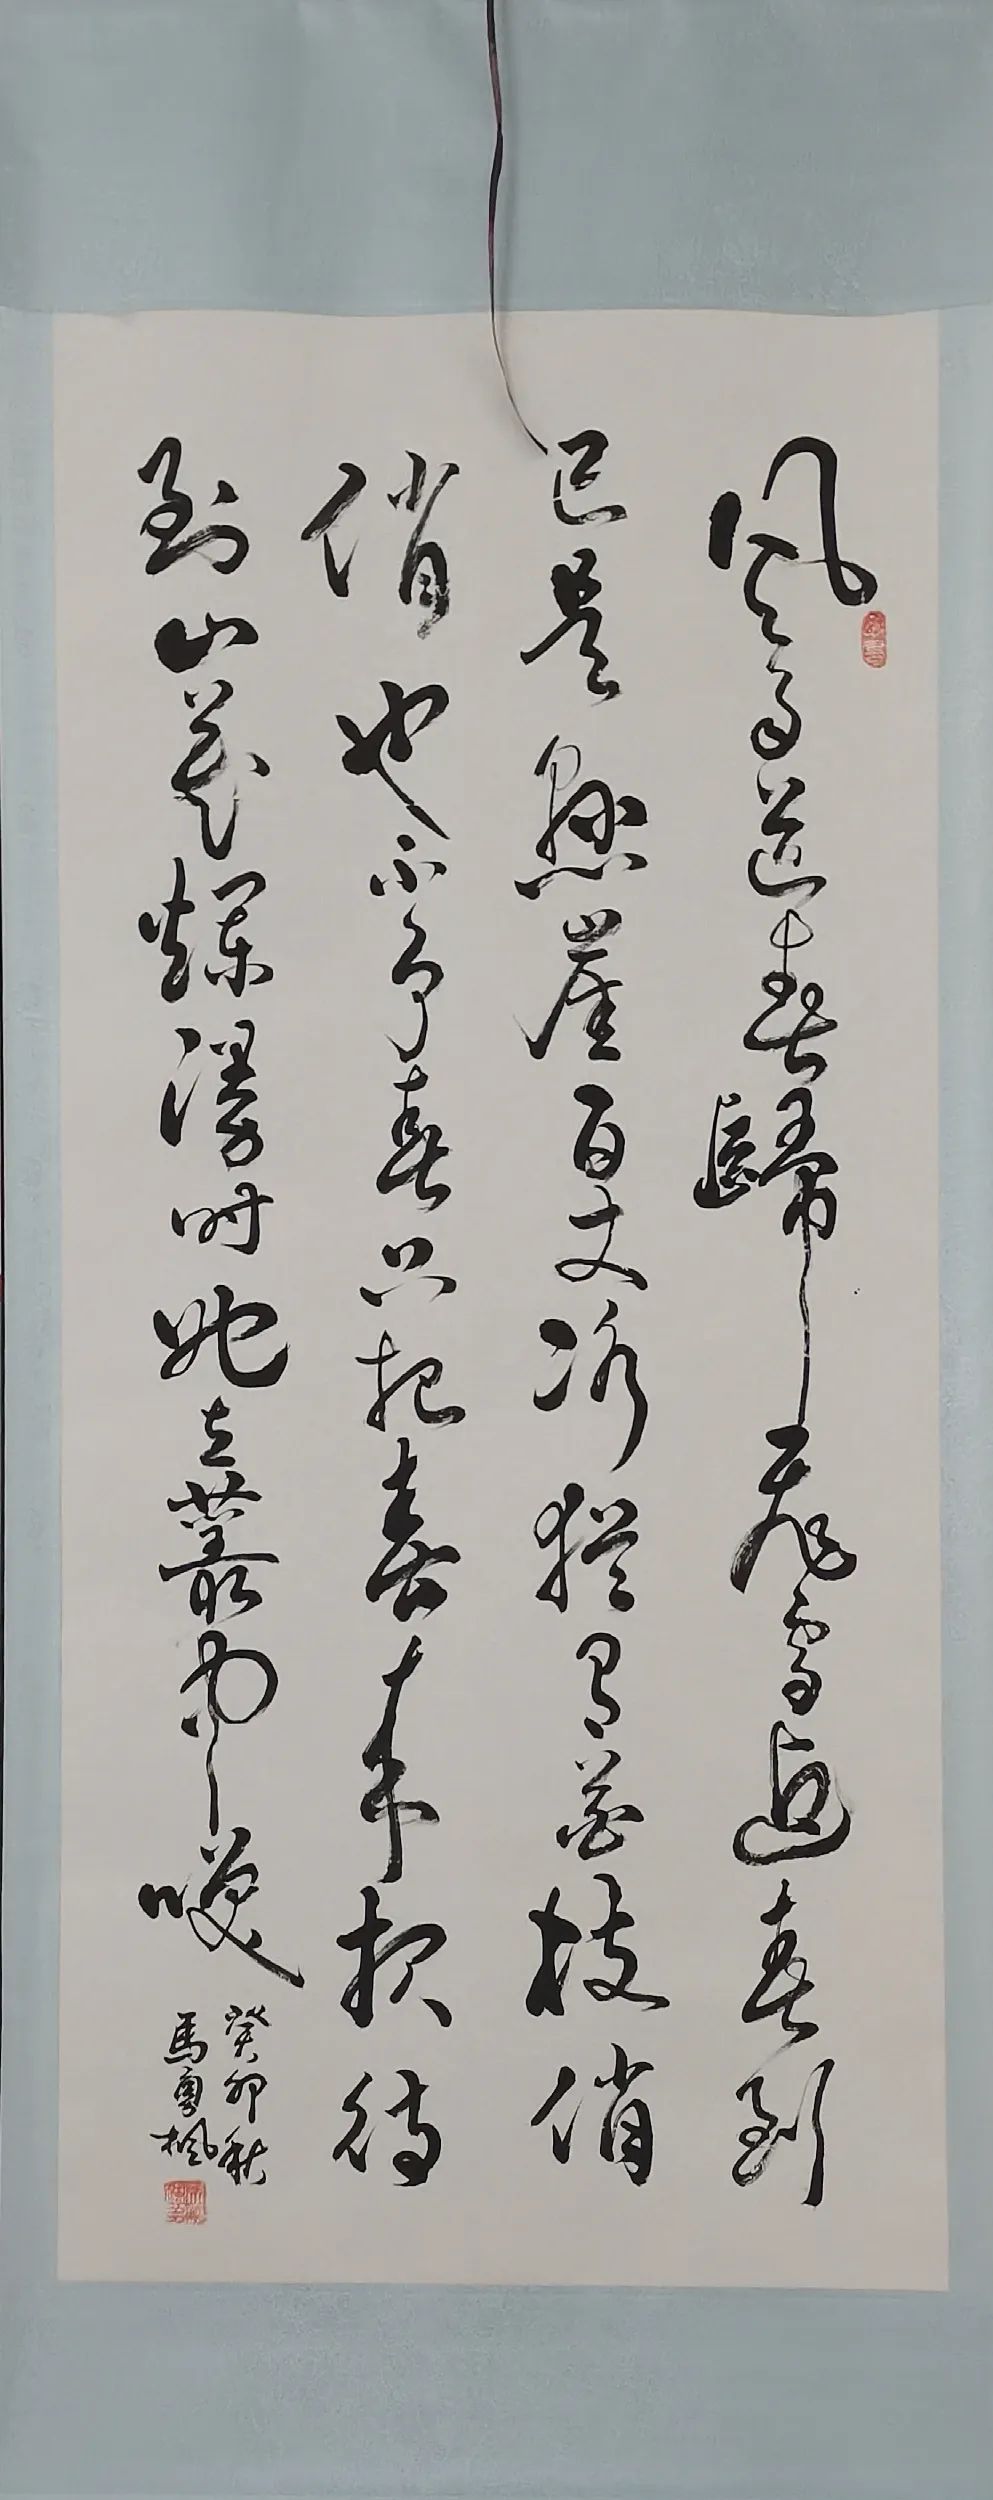 风雨送春歸飛雪迎春到
已是懸崖百丈冰猶有花枝俏
俏也不争春只把春来报待
到山花爛漫时她在叢中笑
癸卯秋
馬勇楓